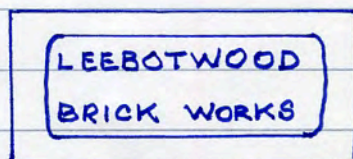 LEEBOTWOOD
BRICK WORKS